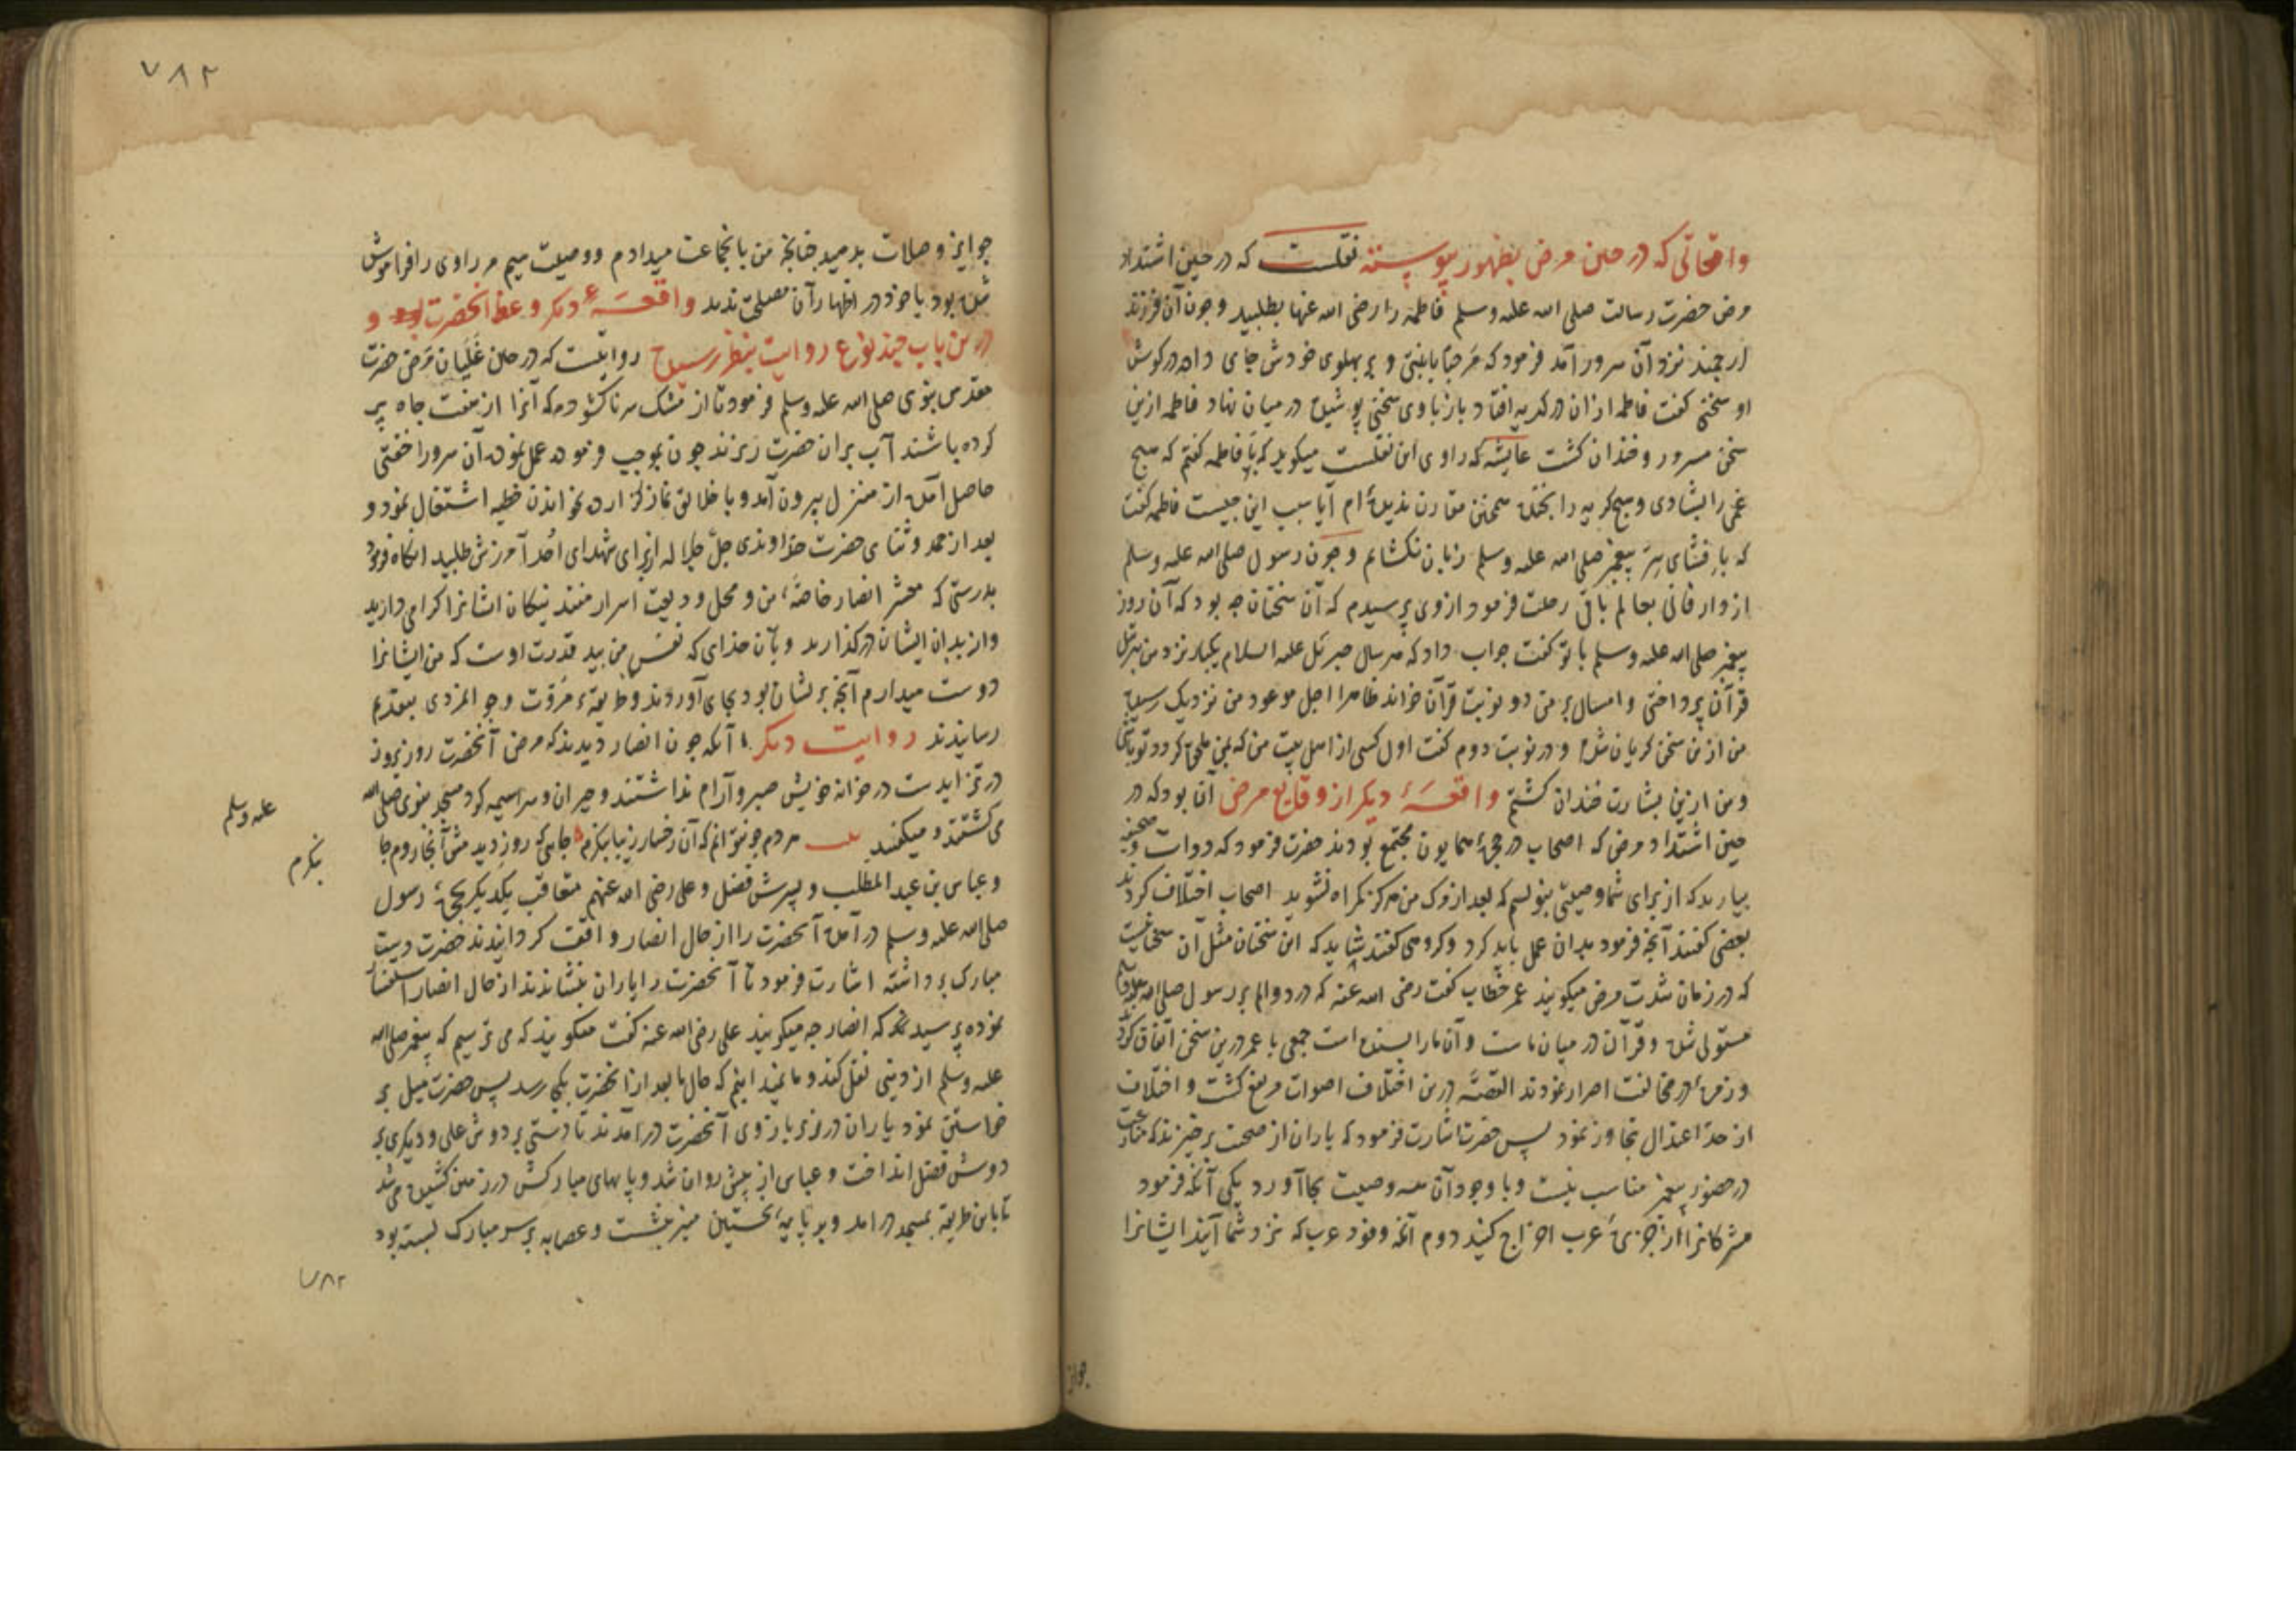 واقعاتی که در حین مرض بظهور پیوسته نقلست که در حین اشتداد
مرض حضرت رسالت صلی الله علیه وسلم فاطمه را رضی الله عنها بطلبید و چون آن فرزند
ارجمند نزد آن سرور آمد فرمود که مرحبا یا بنتی و بر پهلوی خودش جای داد در کوش
او سخنی کفت فاطمه ازان در کریه افتاد باز با وی سخنی پوشیده در میان نهاد فاطمه ازین
سخن مسرور و خندان کشت عایشه که راوی این نقلست میکوید که با فاطمه کفتم که هیچ
غمی را بشادی و هیچ کریه را بخنده همچنین مقارن ندیده‌ام آیا سبب این چیست فاطمه کفت
که بافشای سر پیغمبر صلی الله علیه وسلم زبان نکشایم و چون رسول صلی الله علیه وسلم
از دار فانی بعالم باقی رحلت فرمود از وی پرسیدم که آن سخنان چه بود که آن روز
پیغمبر صلی الله علیه وسلم با تو کفت جواب داد که هر سال جبرئیل علیه السلام یکبار نزد من بتنزیل
قرآن پرداختی و امسال بر من دو نوبت قرآن خواند ظاهرا اجل موعود من نزدیک رسیده
من ازین سخن کریان شدم و در نوبت دوم کفت اول کسی از اهل بیت من که بمن ملحق کردد تو باشی
و من ازین بشارت خندان کشتم واقعهٔ دیکر از وقایع مرض آن بود که در
حین اشتداد مرض که اصحاب در حجرهٔ همایون مجتمع بودند حضرت فرمود که دوات و صحیفه
بیارید که از برای شما وصیتی بنویسم که بعد از وی من هرکز کمراه نشوید اصحاب اختلاف کردند
بعضی کفتند آنچه فرمود بدان عمل باید کرد و کروهی کفتند شاید که این سخنان مثل آن سخنانیست
که در زمان شدت مرض میکویند عمر خطاب کفت رضی الله عنه که درد و الم بر رسول صلی الله علیه وسلم
مستولی شده و قرآن در میان ماست و آن ما را بسنده است جمعی با عمر درین سخن اتفاق کردند
و زمرهٔ در مخالفت اصرار نمودند القصه درین اختلاف اصوات مرتفع کشت و اختلاف
از حد اعتدال تجاوز نمود پس حضرت اشارت فرمود که یاران از صحبت برخیزند که منازعت
در حضور پیغمبر مناسب نیست و با وجود آن سه وصیت بجا آورد یکی آنکه فرمود
مشرکانرا از جزیرهٔ عرب اخراج کنید دوم آنکه وفود عرب که نزد شما آیند ایشانرا
جوایز
۷۸۲
جوایز و صلات بدهید چنانچه من بانجماعت میدادم و وصیت سیم مر راوی را فراموش
شده بود یا خود در اظهار آن مصلحت ندید واقعهٔ دیکر وعظ آنحضرت بود و
درین باب چند نوع روایت بنظر رسیده روایتست که در حین غلیان مرض حضرت
مقدس نبوی صلی الله علیه وسلم فرمود تا از مشک سر ناکشوده که آنرا از هفت چاه پر
کرده باشند آب بران حضرت ریزند چون بموجب فرموده عمل نمودند آن سرور را خفتی
حاصل آمده از منزل بیرون آمد و با خلایق نماز کزارده بخواندن خطبه اشتغال نمود و
بعد از حمد و ثنای حضرت خداوندی جل جلاله از برای شهدای احد آمرزش طلبید انکاه فرمود
بدرستی که معشر انصار خاصهٔ من و محل ودیعت اسرار منند نیکان ایشانرا کرامی دارید
و از بدان ایشان در کذارید و بآن خدای که نفس من بید قدرت اوست که من ایشانرا
دوست میدارم آنچه بر ایشان بود بجای آوردند و طریقهٔ مروت و جوانمردی بتقدیم
رسانیدند روایت دیکر آنکه چون انصار دیدند که مرض آنحضرت روز بروز
در تزایدست در خانه خویش صبر و آرام نداشتند و حیران و سراسیمه کرد مسجد نبوی صلی الله
علیه وسلم
می کشتند و میکفتند بیت مردم چو نتوانم که آن رخسار زیبا بنکرم جایی که روزی دیدمش آنجا روم جا
بنکرم
و عباس بن عبد المطلب و پسرش فضل و علی رضی الله عنهم متعاقب یکدیکر بحجرهٔ رسول
صلی الله علیه وسلم در آمده آنحضرت را از حال انصار واقف کردانیدند حضرت دست
مبارک برداشته اشارت فرمود تا آنحضرت را یاران بنشاندند از حال انصار استفسار
نموده پرسید که انصار چه میکویند علی رضی الله عنه کفت میکویند که می ترسیم که پیغمبر صلی الله
علیه وسلم از دنیی نقل کند و ما نمیدانیم که حال ما بعد از آنحضرت بکجا رسد پس حضرت میل بر
خواستن نمود یاران در زیر بازوی آنحضرت درآمدند تا دستی بر دوش علی و دیکری بر
دوش فضل انداخت و عباس از پیش روان شد و پایهای مبارکش در زمین کشیده می شد
تا باین طریقه بمسجد درامد و بر پایهٔ نخستین منبر بنشست و عصابه بر سر مبارک بسته بود
۷۸۲